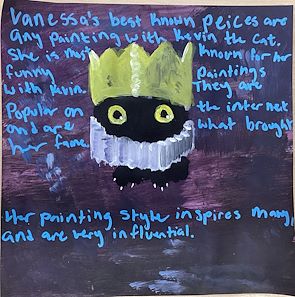 Vanessa's best known peices are
any painting with Kevin the Cat.
She is most known for her
funny paintings
with Kevin. They are
Popular on the internet
and are what brought
her fame.
Her painting style inspires many,
and are very influential.